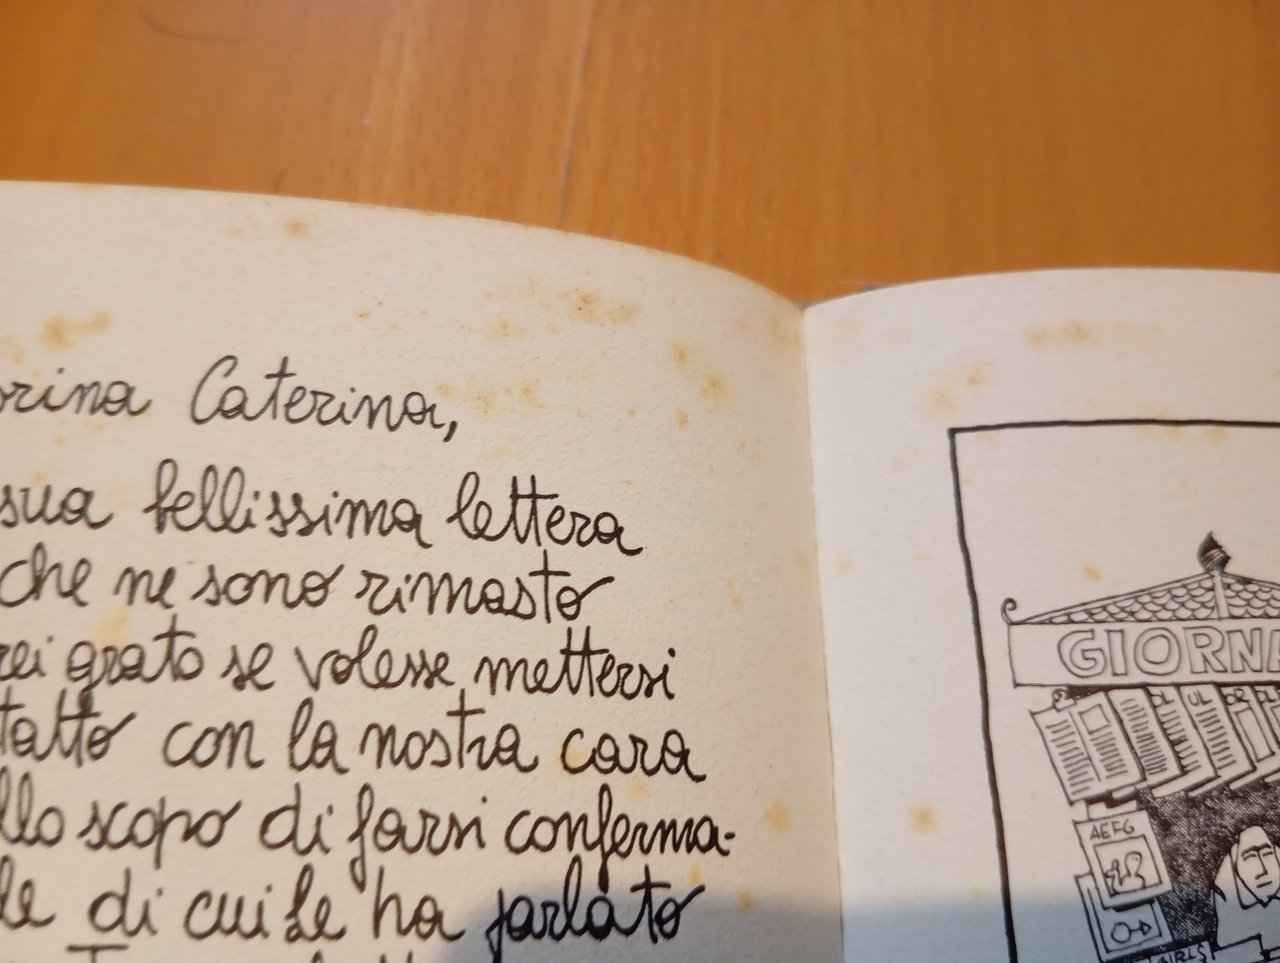 rina Caterina,
sua bellissima lettera
che ne sono rimasto
rei grato se volesse mettersi
tatto con la nostra cara
llo scopo di farsi conferma-
le di cui Le ha parlato
GIORNA
AEFG
GIRLS